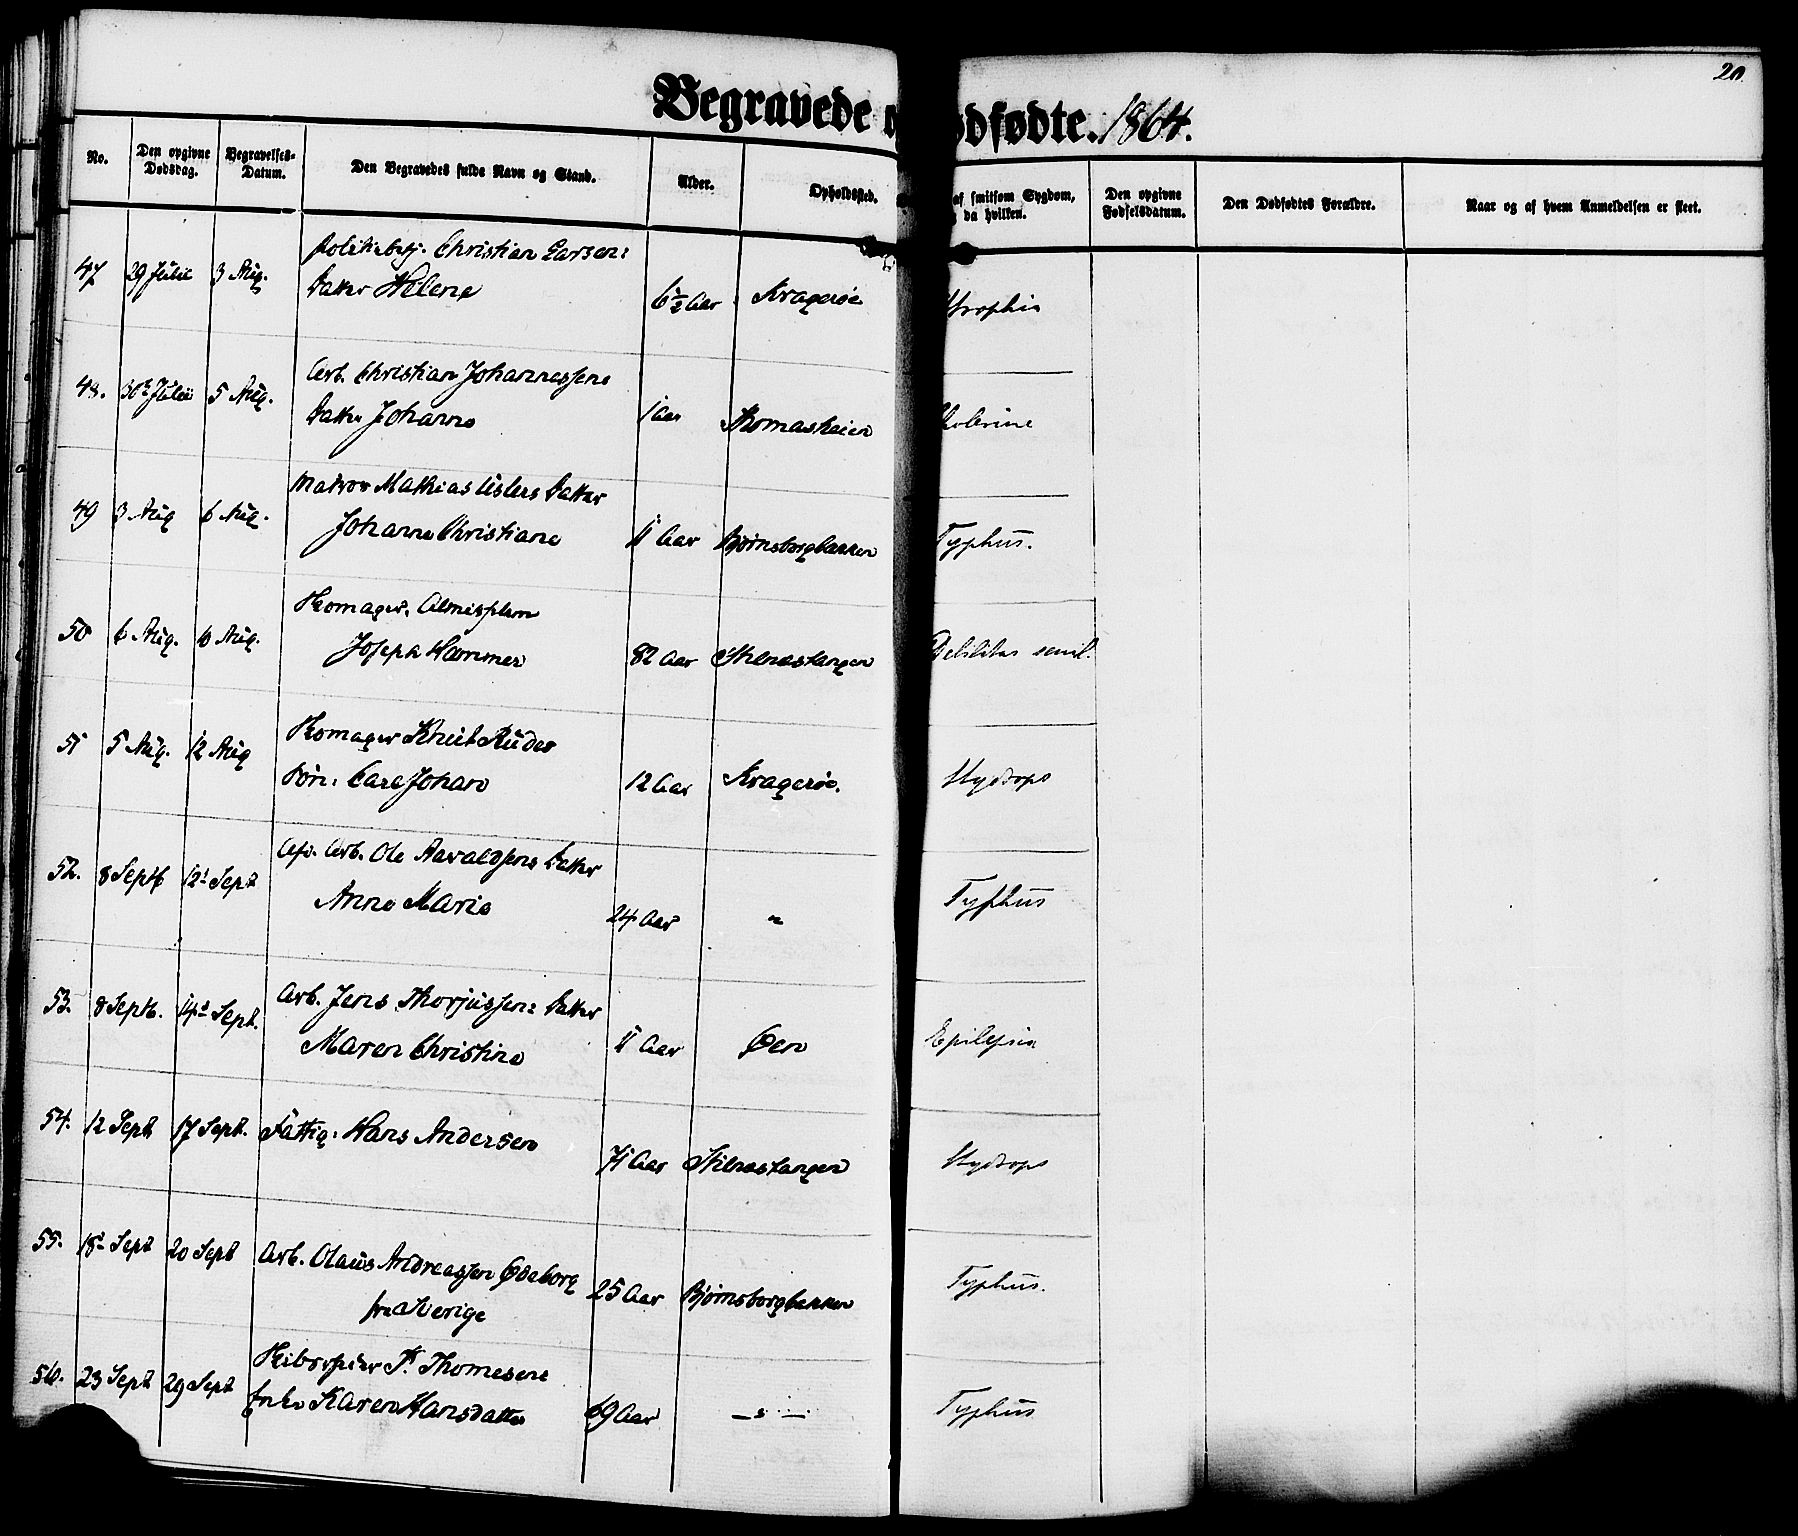 20.
Begravede o dfødte. 1864.
No. Den opgivne Dødsdag. Begravelses-Datum. Den Begravedes fulde Navn og Stand. Alder. Opholdssted. af smitsom Sygdom, da hvilken. Den opgivne Fødselsdatum. Den Dødfødtes Forældre. Naar og af hvem Anmeldelsen er skeet.
47 29 Julii 3 Aug. Politibetj. Christian Larsens
Datter Helene 6½ Aar Kragerøe Atrophia
48. 30te Julii 5 Aug. Arb. Christian Johannessens
Datter Johanne 1 Aar Thomasheien Cholerine
49 3 Aug 6 Aug. Matros Mathias Datter
Johanne Christiane 11 Aar Bjørnsborgbakken Typhus.
50 6 Aug. 10 Aug. Skomager, Almisselem
Joseph Hammer 82 Aar Stilnestangen Debilitas senil.
51 5 Aug. 12 Aug Skomager Knut
Søn: Carl Johan 12 Aar Kragerøe. Hydrops
52. 8 Septb 12te Sept Afd. Arb. Ole Aavaldsens Datter
Anne Marie 24 Aar " Typhus
53. 8 Septb. 14de Sept. Arb. Jens Thorjussens Datter
Maren Christine 11 Aar Øen Epilepsia
54. 12 Sept 17 Sept. Fattig: Hans Andersen
71 Aar Stilnestangen Hydrops
55. 18de Sept 20 Sept Arb. Olaus Andreassen Ødeborg
fra Sverige 25 Aar Bjørnsborgbakken Typhus.
56. 23 Sept 29 Sept Skibstømr T. Thomesens
Enke Karen Hansdatter 69 Aar — " — Typhus